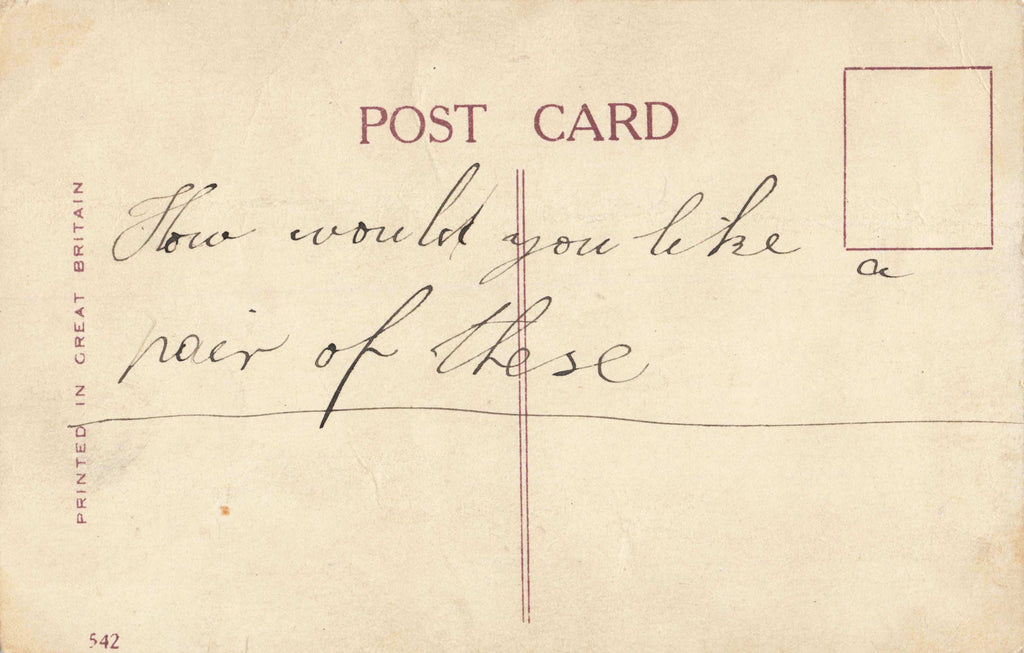 POST CARD
How would you like a
pair of these
PRINTED IN GREAT BRITAIN
542